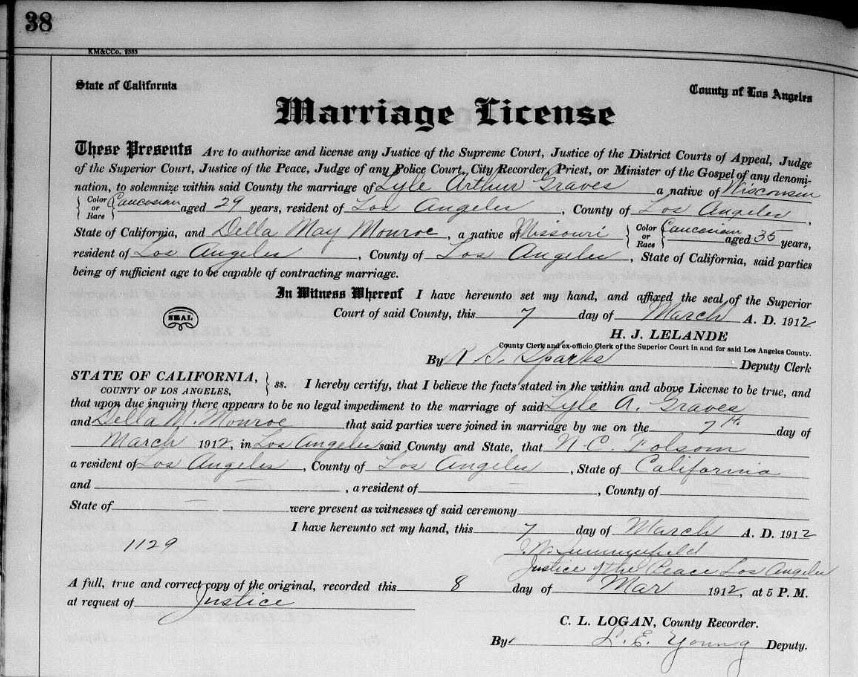 38
KM&CCo. 2535
State of California
County of Los Angeles
Marriage License
These Presents Are to authorize and license any Justice of the Supreme Court, Justice of the District Courts of Appeal, Judge
of the Superior Court, Justice of the Peace, Judge of any Police Court, City Recorder, Priest, or Minister of the Gospel of any denomi-
nation, to solemnize within said County the marriage of Lyle Arthur Graves a native of Wisconsin
Color or Race Caucasian aged 29 years, resident of Los Angeles, County of Los Angeles,
State of California, and Della May Monroe, a native of Missouri Color or Race Caucasian aged 35 years,
resident of Los Angeles, County of Los Angeles, State of California, said parties
being of sufficient age to be capable of contracting marriage.
In Witness Whereof I have hereunto set my hand, and affixed the seal of the Superior
SEAL
Court of said County, this 7 day of March A. D. 1912
H. J. LELANDE
County Clerk and ex-officio Clerk of the Superior Court in and for said Los Angeles County.
By Sparks Deputy Clerk
STATE OF CALIFORNIA,
COUNTY OF LOS ANGELES, ss. I hereby certify, that I believe the facts stated in the within and above License to be true, and
that upon due inquiry there appears to be no legal impediment to the marriage of said Lyle A. Graves
and Della M. Monroe that said parties were joined in marriage by me on the 7th day of
March 1912, in Los Angeles said County and State, that N. C. Folsom
a resident of Los Angeles, County of Los Angeles, State of California
and , a resident of , County of
State of were present as witnesses of said ceremony
I have hereunto set my hand, this 7 day of March A. D. 1912
1129
Summerfield
Justice of the Peace Los Angeles
A full, true and correct copy of the original, recorded this 8 day of Mar 1912, at 5 P. M.
at request of Justice
C. L. LOGAN, County Recorder.
By L. E. Young Deputy.